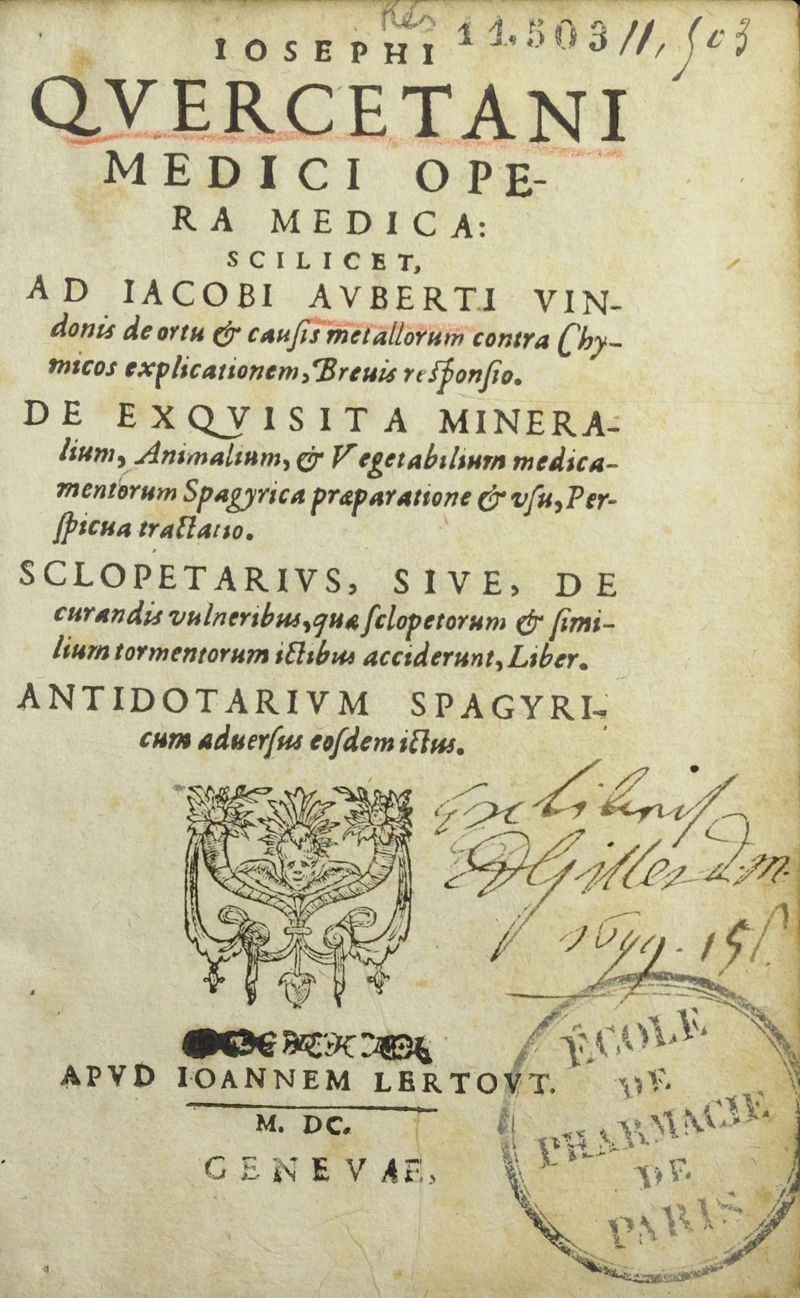 Rés
11.503 11,503
IOSEPHI
QVERCETANI
MEDICI OPE-
RA MEDICA:
SCILICET,
AD IACOBI AVBERTI VIN-
donis de ortu & cauſis metallorum contra Chy-
micos explicationem, Breuis reſponſio.
DE EXQVISITA MINERA-
lium, Animalium, & Vegetabilium medica-
mentorum Spagyrica præparatione & vſu, Per-
ſpicua tractatio.
SCLOPETARIVS, SIVE, DE
curandis vulneribus, quæ ſclopetorum & ſimi-
lium tormentorum ictibus acciderunt, Liber.
ANTIDOTARIVM SPAGYRI-
cum aduerſus eoſdem ictus.
Ex libris
d. m.
APVD IOANNEM LERTOVT.
M. DC.
GENEVAE,
ÉCOLE
DE
PHARMACIE
DE
PARIS